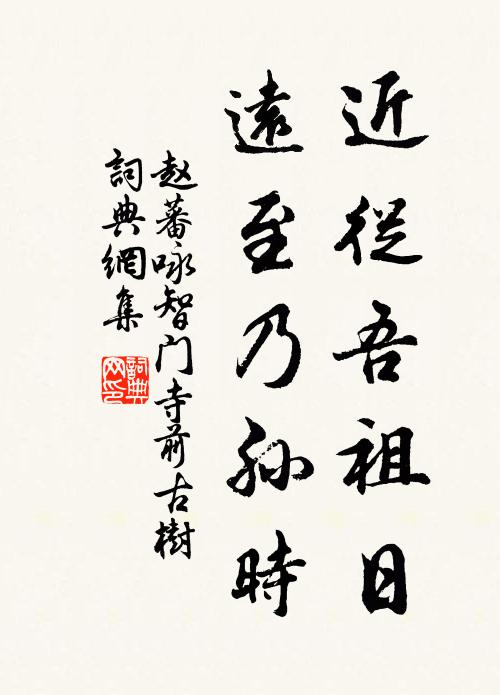 近從吾祖日
遠至乃孙時
赵蕃咏智门寺前古樹
詞典網集
詞典
网印